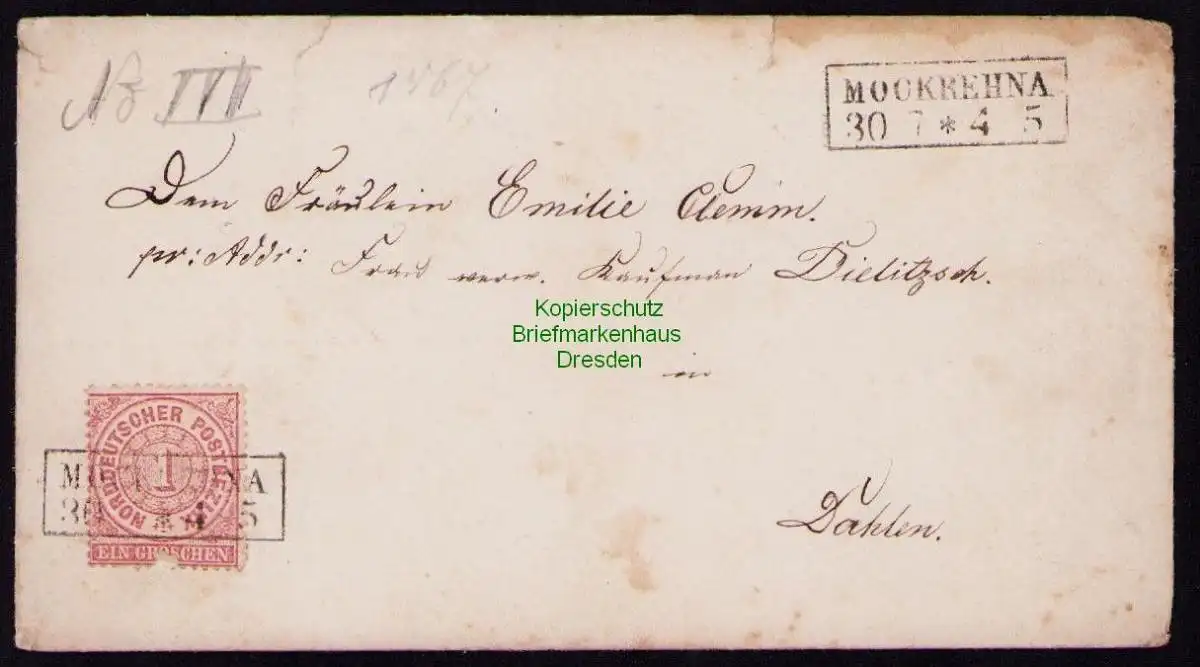 No III 1867
MOCKREHNA
30 7 * 4 5
Dem Fräulein Emilie Clemm.
pr: Addr: Frau verw. Kaufman Dielitzsch.
Kopierschutz
Briefmarkenhaus
Dresden
in
Dahlen.
NORDDEUTSCHER POSTBEZIRK
1
EIN GROSCHEN